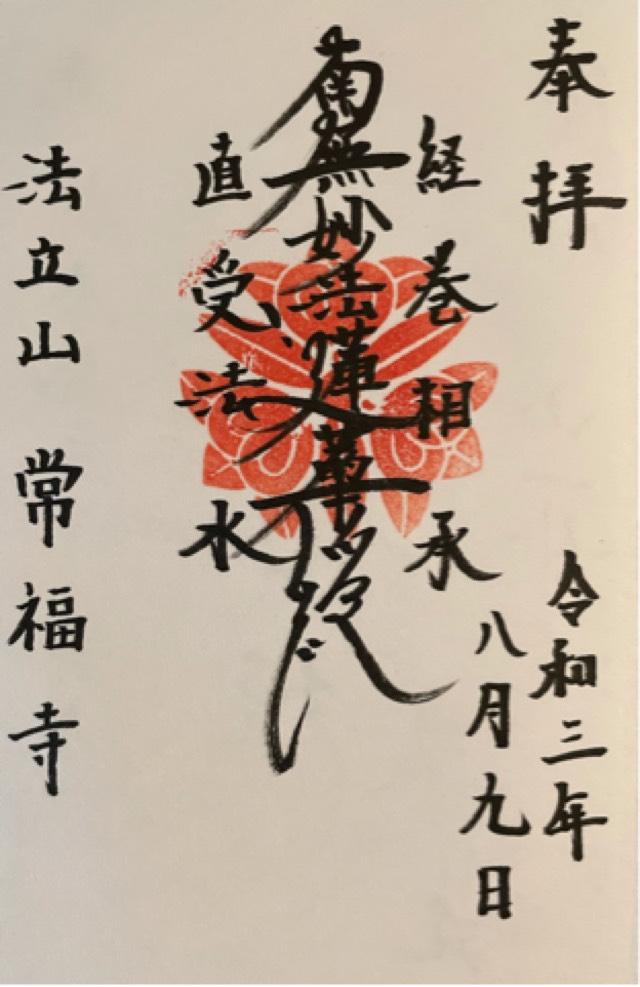 奉拝
令和三年
八月九日
経巻相承
南無妙法蓮華経
直受法水
法立山 常福寺